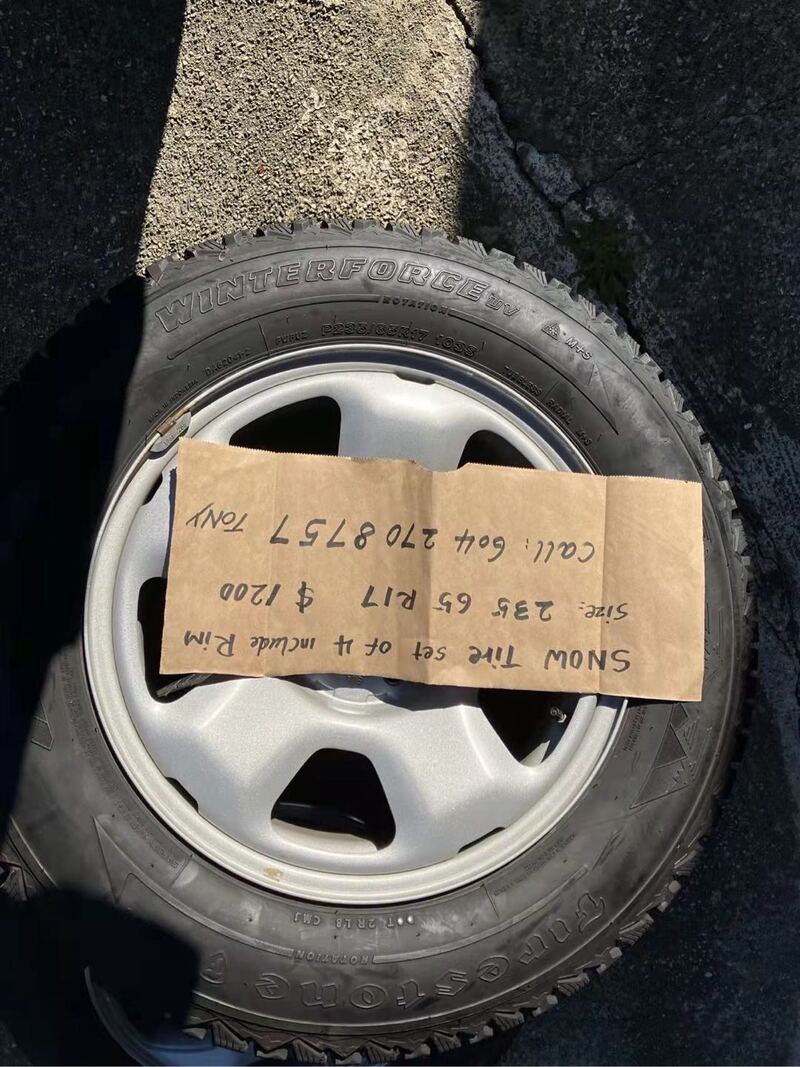 WINTERFORCE UV
ROTATION
M+S
P235/65R17 103S
TUBELESS RADIAL M+S
SNOW Tire set of 4 include Rim
Size: 235 65 R17 $1200
Call: 604 270 8757 TONY
2RL8 CMJ
ROTATION
Firestone